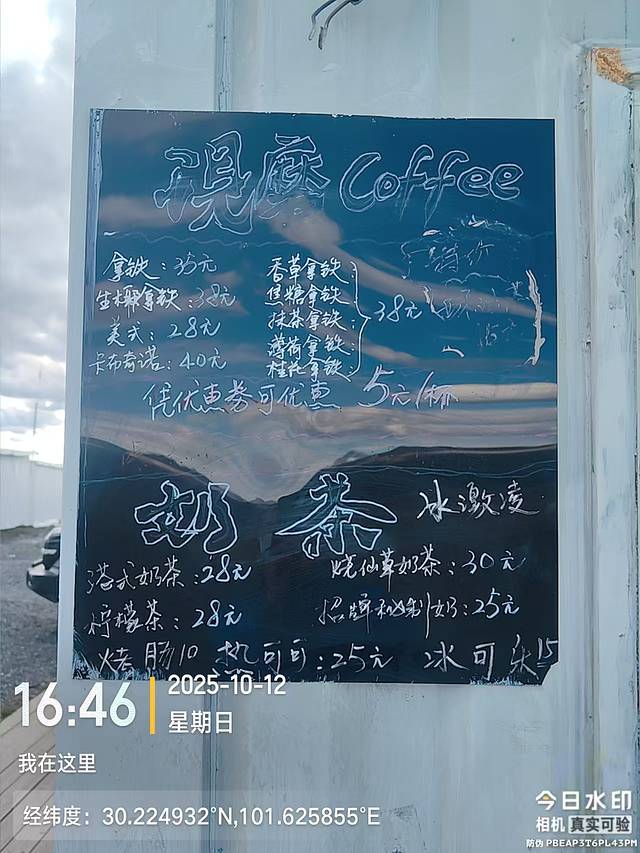 現磨 Coffee
拿铁：35元
生椰拿铁：38元
美式：28元
卡布奇诺：40元
香草拿铁
焦糖拿铁
抹茶拿铁
薄荷拿铁
桂花拿铁
38元
特价
凭优惠券可优惠 5元/杯
奶茶 冰激凌
港式奶茶：28元 烧仙草奶茶：30元
柠檬茶：28元 招牌秘制奶：25元
烤肠10 热可可：25元 冰可乐15
16:46
2025-10-12
星期日
我在这里
经纬度：30.224932°N,101.625855°E
今日水印
相机 真实可验
防伪 PBEAP3T6PL43PM